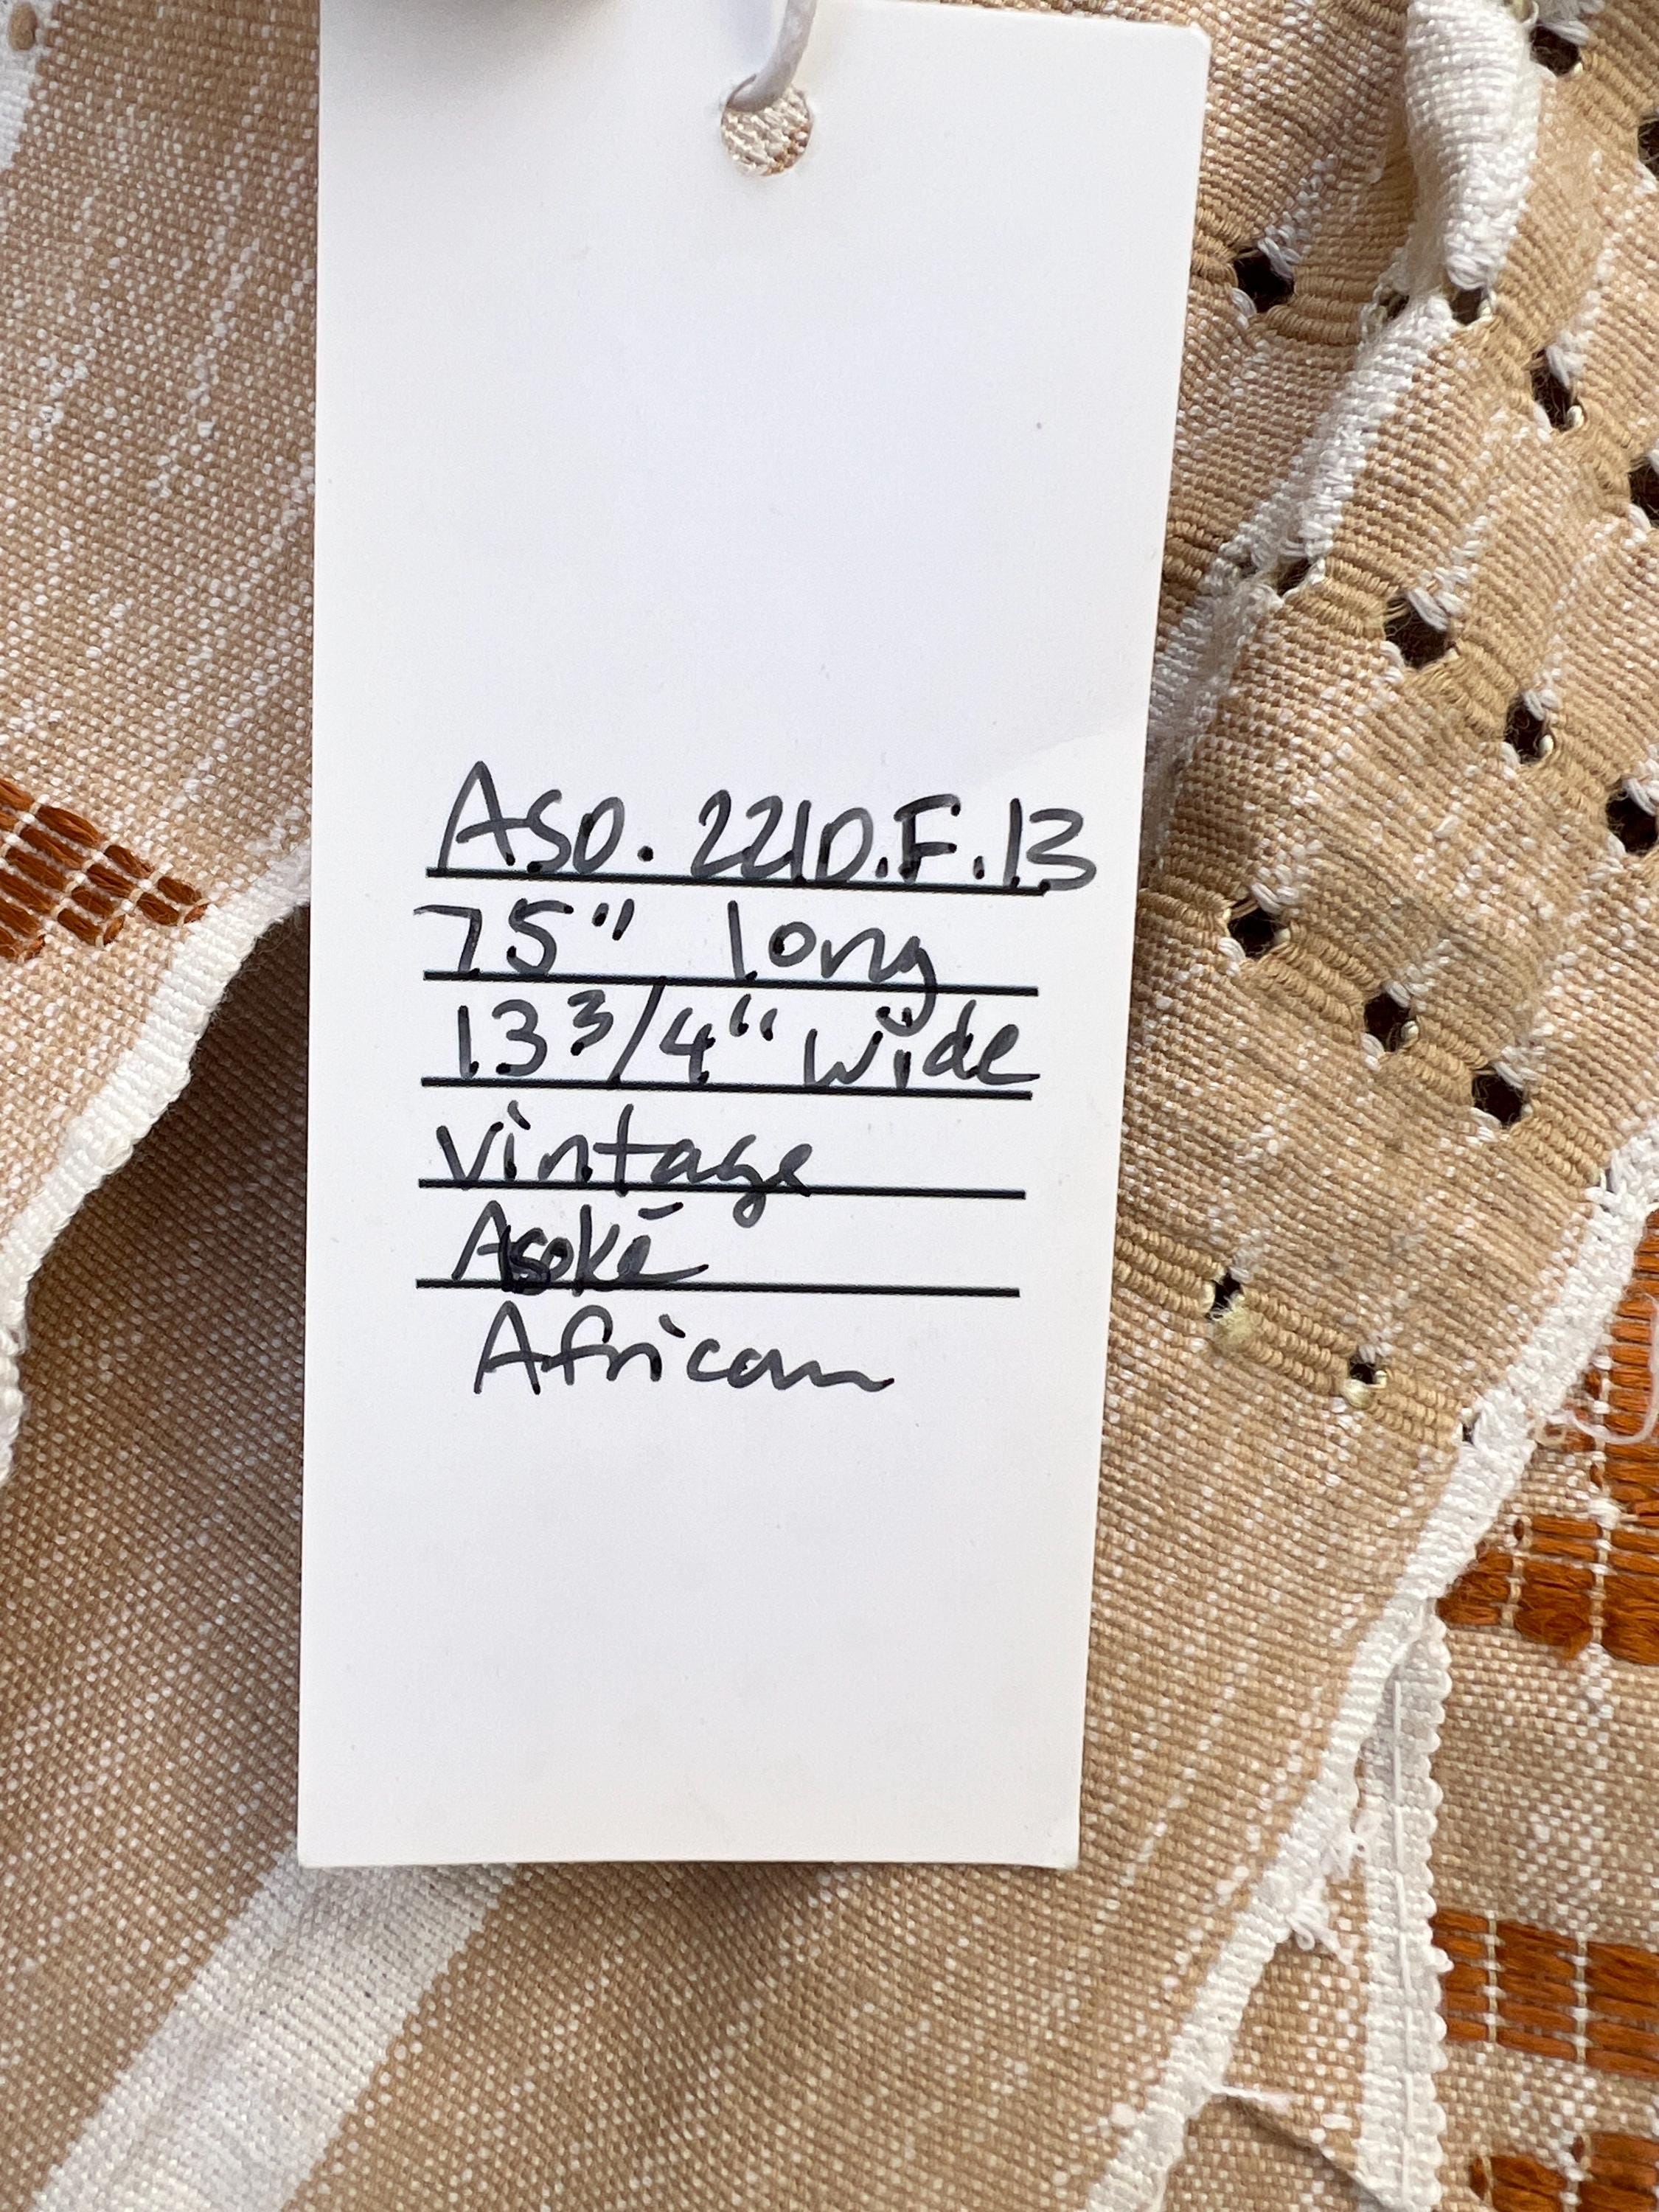 Aso. 221D.F.13
75" long
13 3/4" wide
vintage
Asokē
African